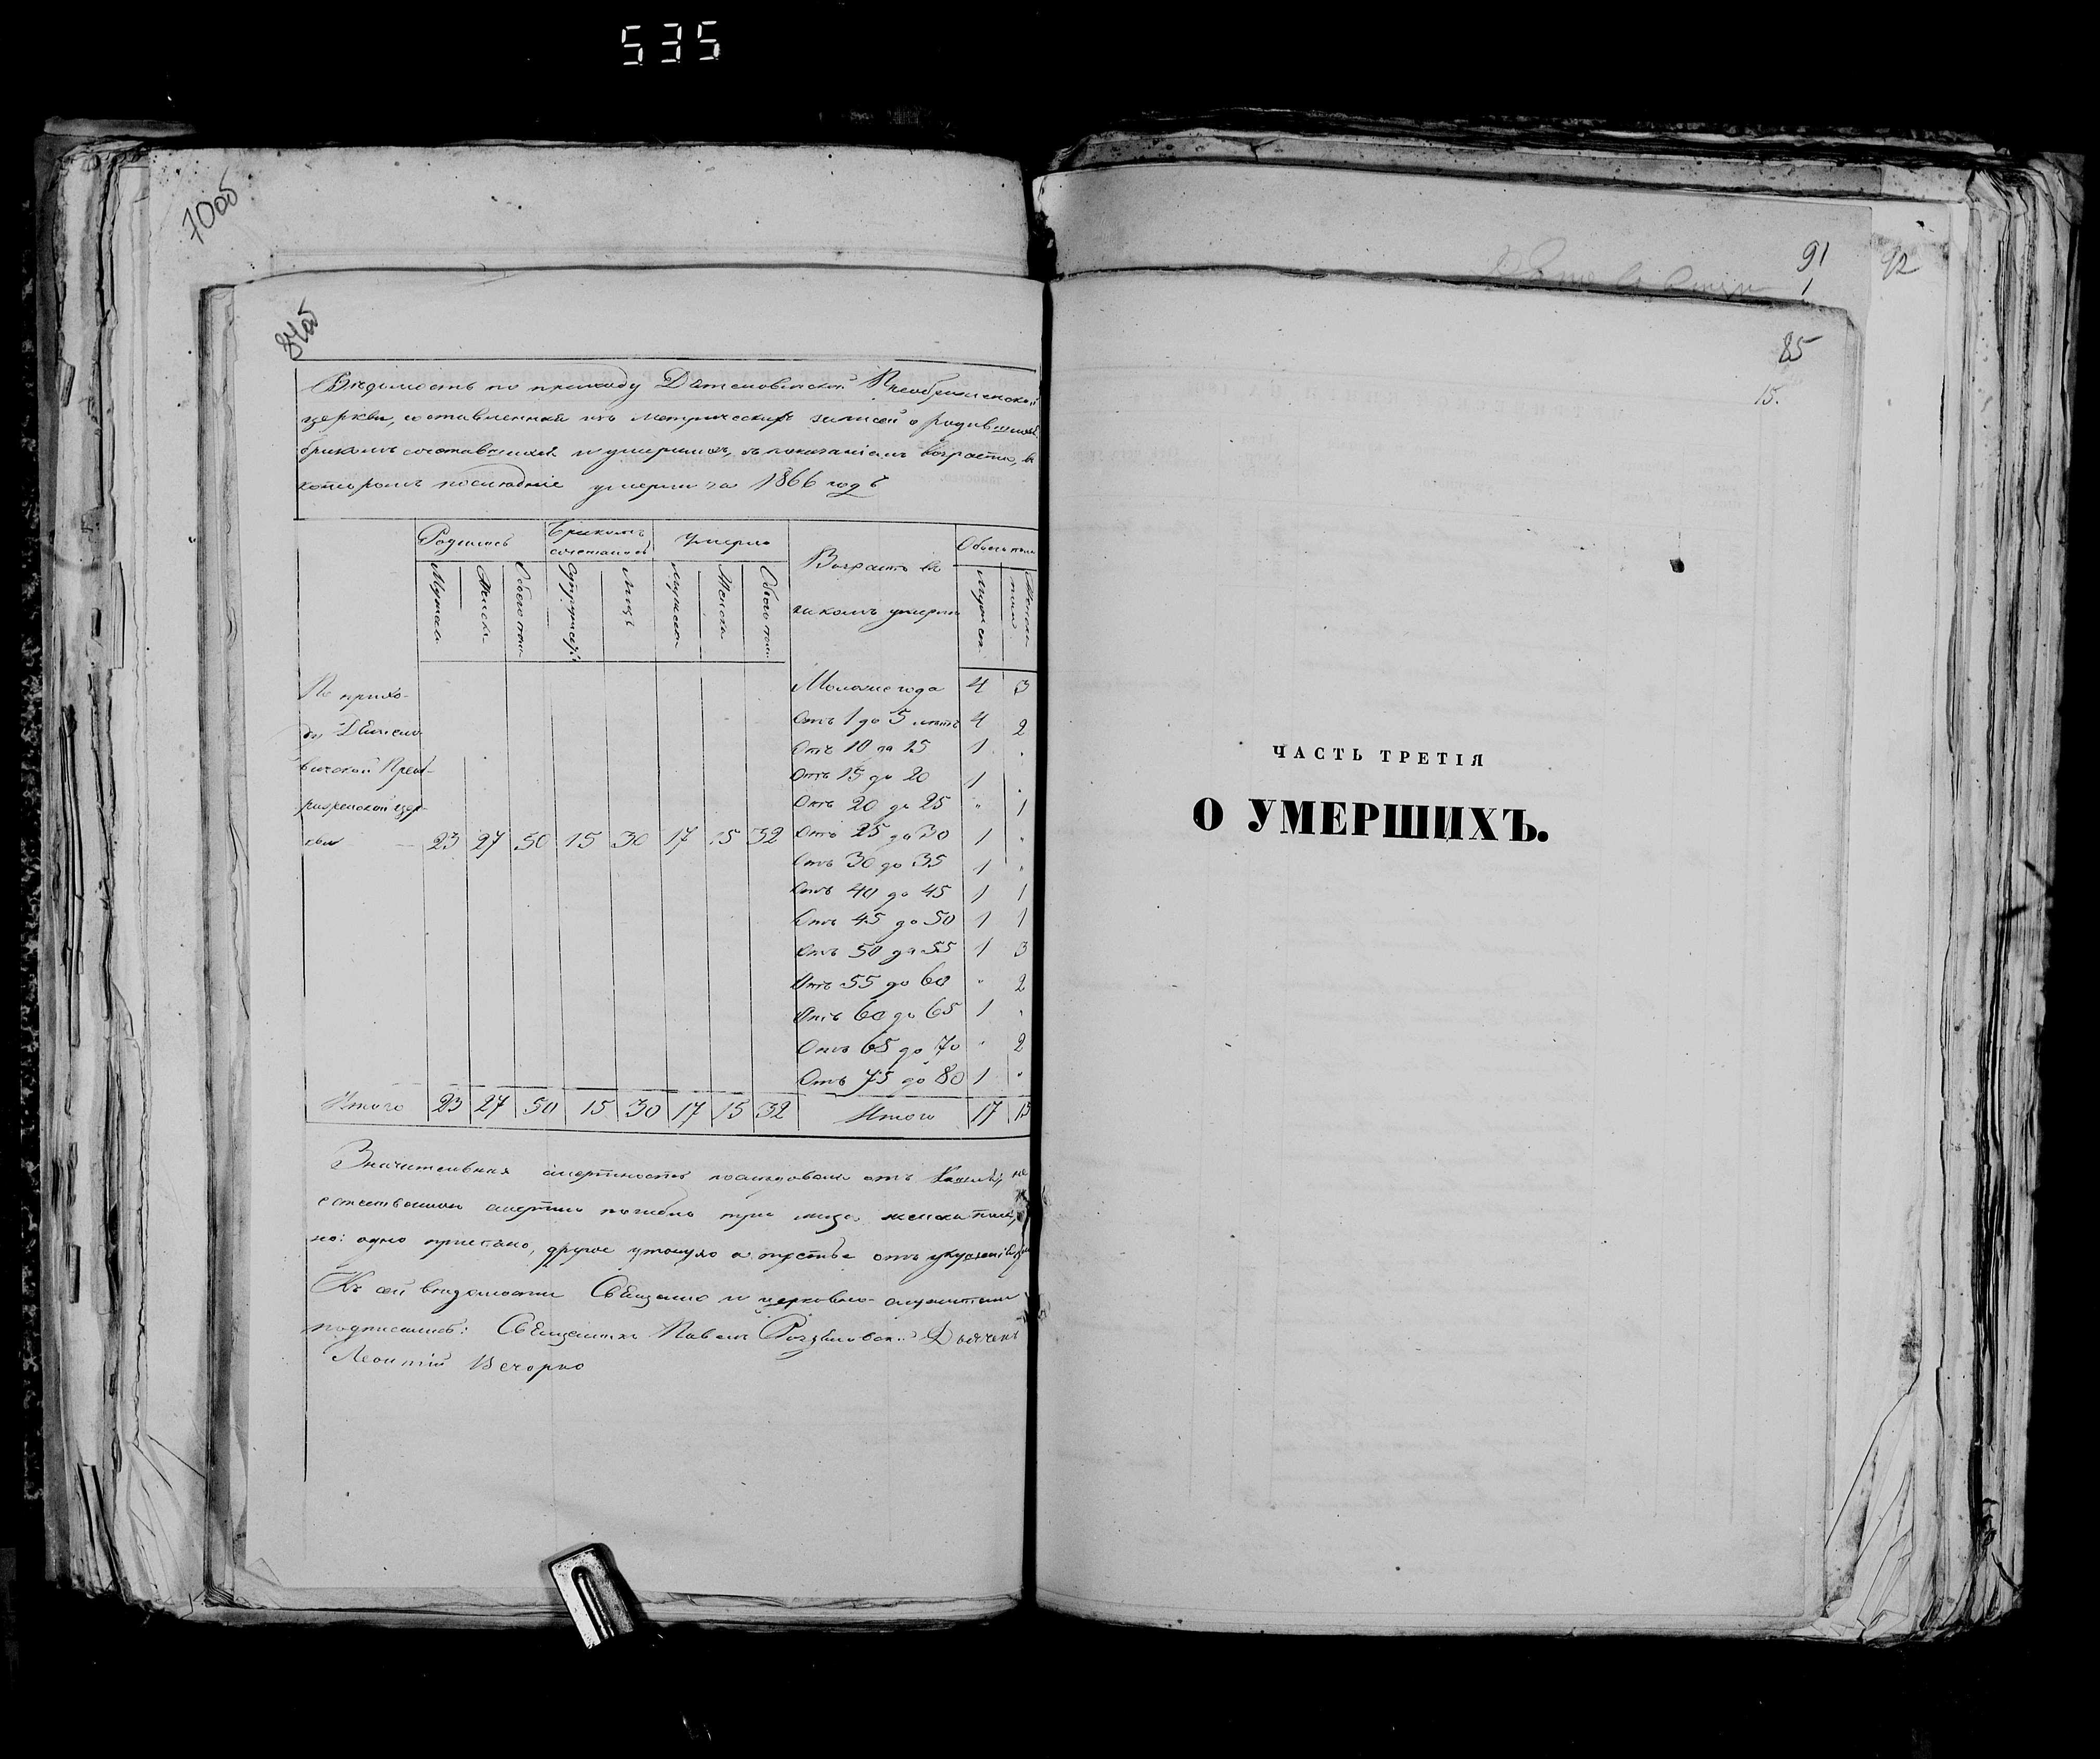 535
70об
84об
Ведомость по приходу Преображенской
церкви, составленная изъ метрическихъ записей о родившихся
бракомъ умершихъ, съ показаніемъ возраста, въ
которомъ последніе умерли за 1866 годъ
Родилось
Бракомъ сочеталось
Умерло
Возрастъ въ
какомъ умерли
Обоего пола
Мужска
Женска
Обоего пола
Супружествъ
Лицъ
Мужеска
Женска
Обоего пола
По прихо-
ду
Прео-
браженской цер-
кви 23 27 50 15 30 17 15 32
Моложе года 4 3
Отъ 1 до 5 летъ 4 2
Отъ 10 до 15 1 "
Отъ 15 до 20 1 "
Отъ 20 до 25 " 1
Отъ 25 до 30 1 "
Отъ 30 до 35 1 "
Отъ 40 до 45 1 1
Отъ 45 до 50 1 1
Отъ 50 до 55 1 3
Отъ 55 до 60 " 2
Отъ 60 до 65 1 "
Отъ 65 до 70 " 2
Отъ 75 до 80 1 "
Итого 23 27 50 15 30 17 15 32 Итого 17 15
Значительная смертность последовала отъ не
естественною смертью погибло три лица женска пола,
но: одно, другое утонуло а третье отъ
Къ сей ведомости Священно и церковно-служители
подписались: Священникъ Павелъ Дьячекъ
Леонтій
91
1
92
85
15.
ЧАСТЬ ТРЕТІЯ
О УМЕРШИХЪ.